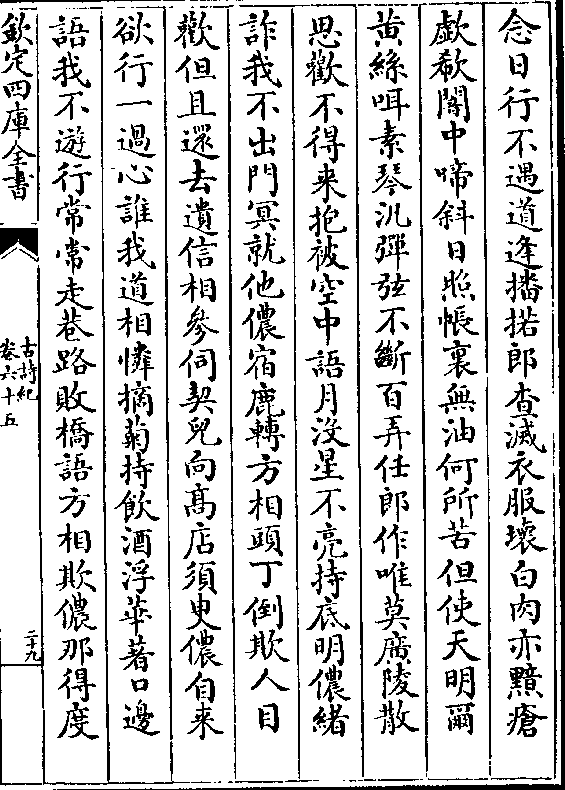 念日行不遇道逢播掿郎查滅衣服壞白肉亦黯瘡
歔欷闇中啼斜日照帳裏無油何所苦但使天明爾
黄絲咡素琴汎彈弦不斷百弄任郎作唯莫廣陵散
思歡不得来抱被空中語月没星不亮持底明儂緒
詐我不出門冥就他儂宿鹿轉方相頭丁倒欺人目
歡但且還去遺信相參伺契兒向髙店須臾儂自来
欲行一過心誰我道相憐摘菊持飲酒浮華著口邊
語我不遊行常常走巷路敗橋語方相欺儂那得度
欽定四庫全書
古詩紀
卷六十五
二十九